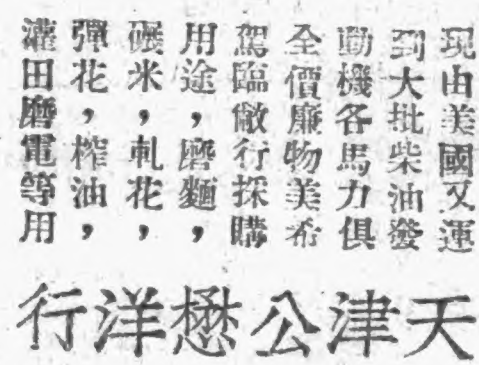 現由美國又運
到大批柴油發
動機各馬力俱
全價廉物美希
駕臨敝行採購
用途，磨麵，
碾米，軋花，
彈花，榨油，
灌田磨電等用
天津公懋洋行